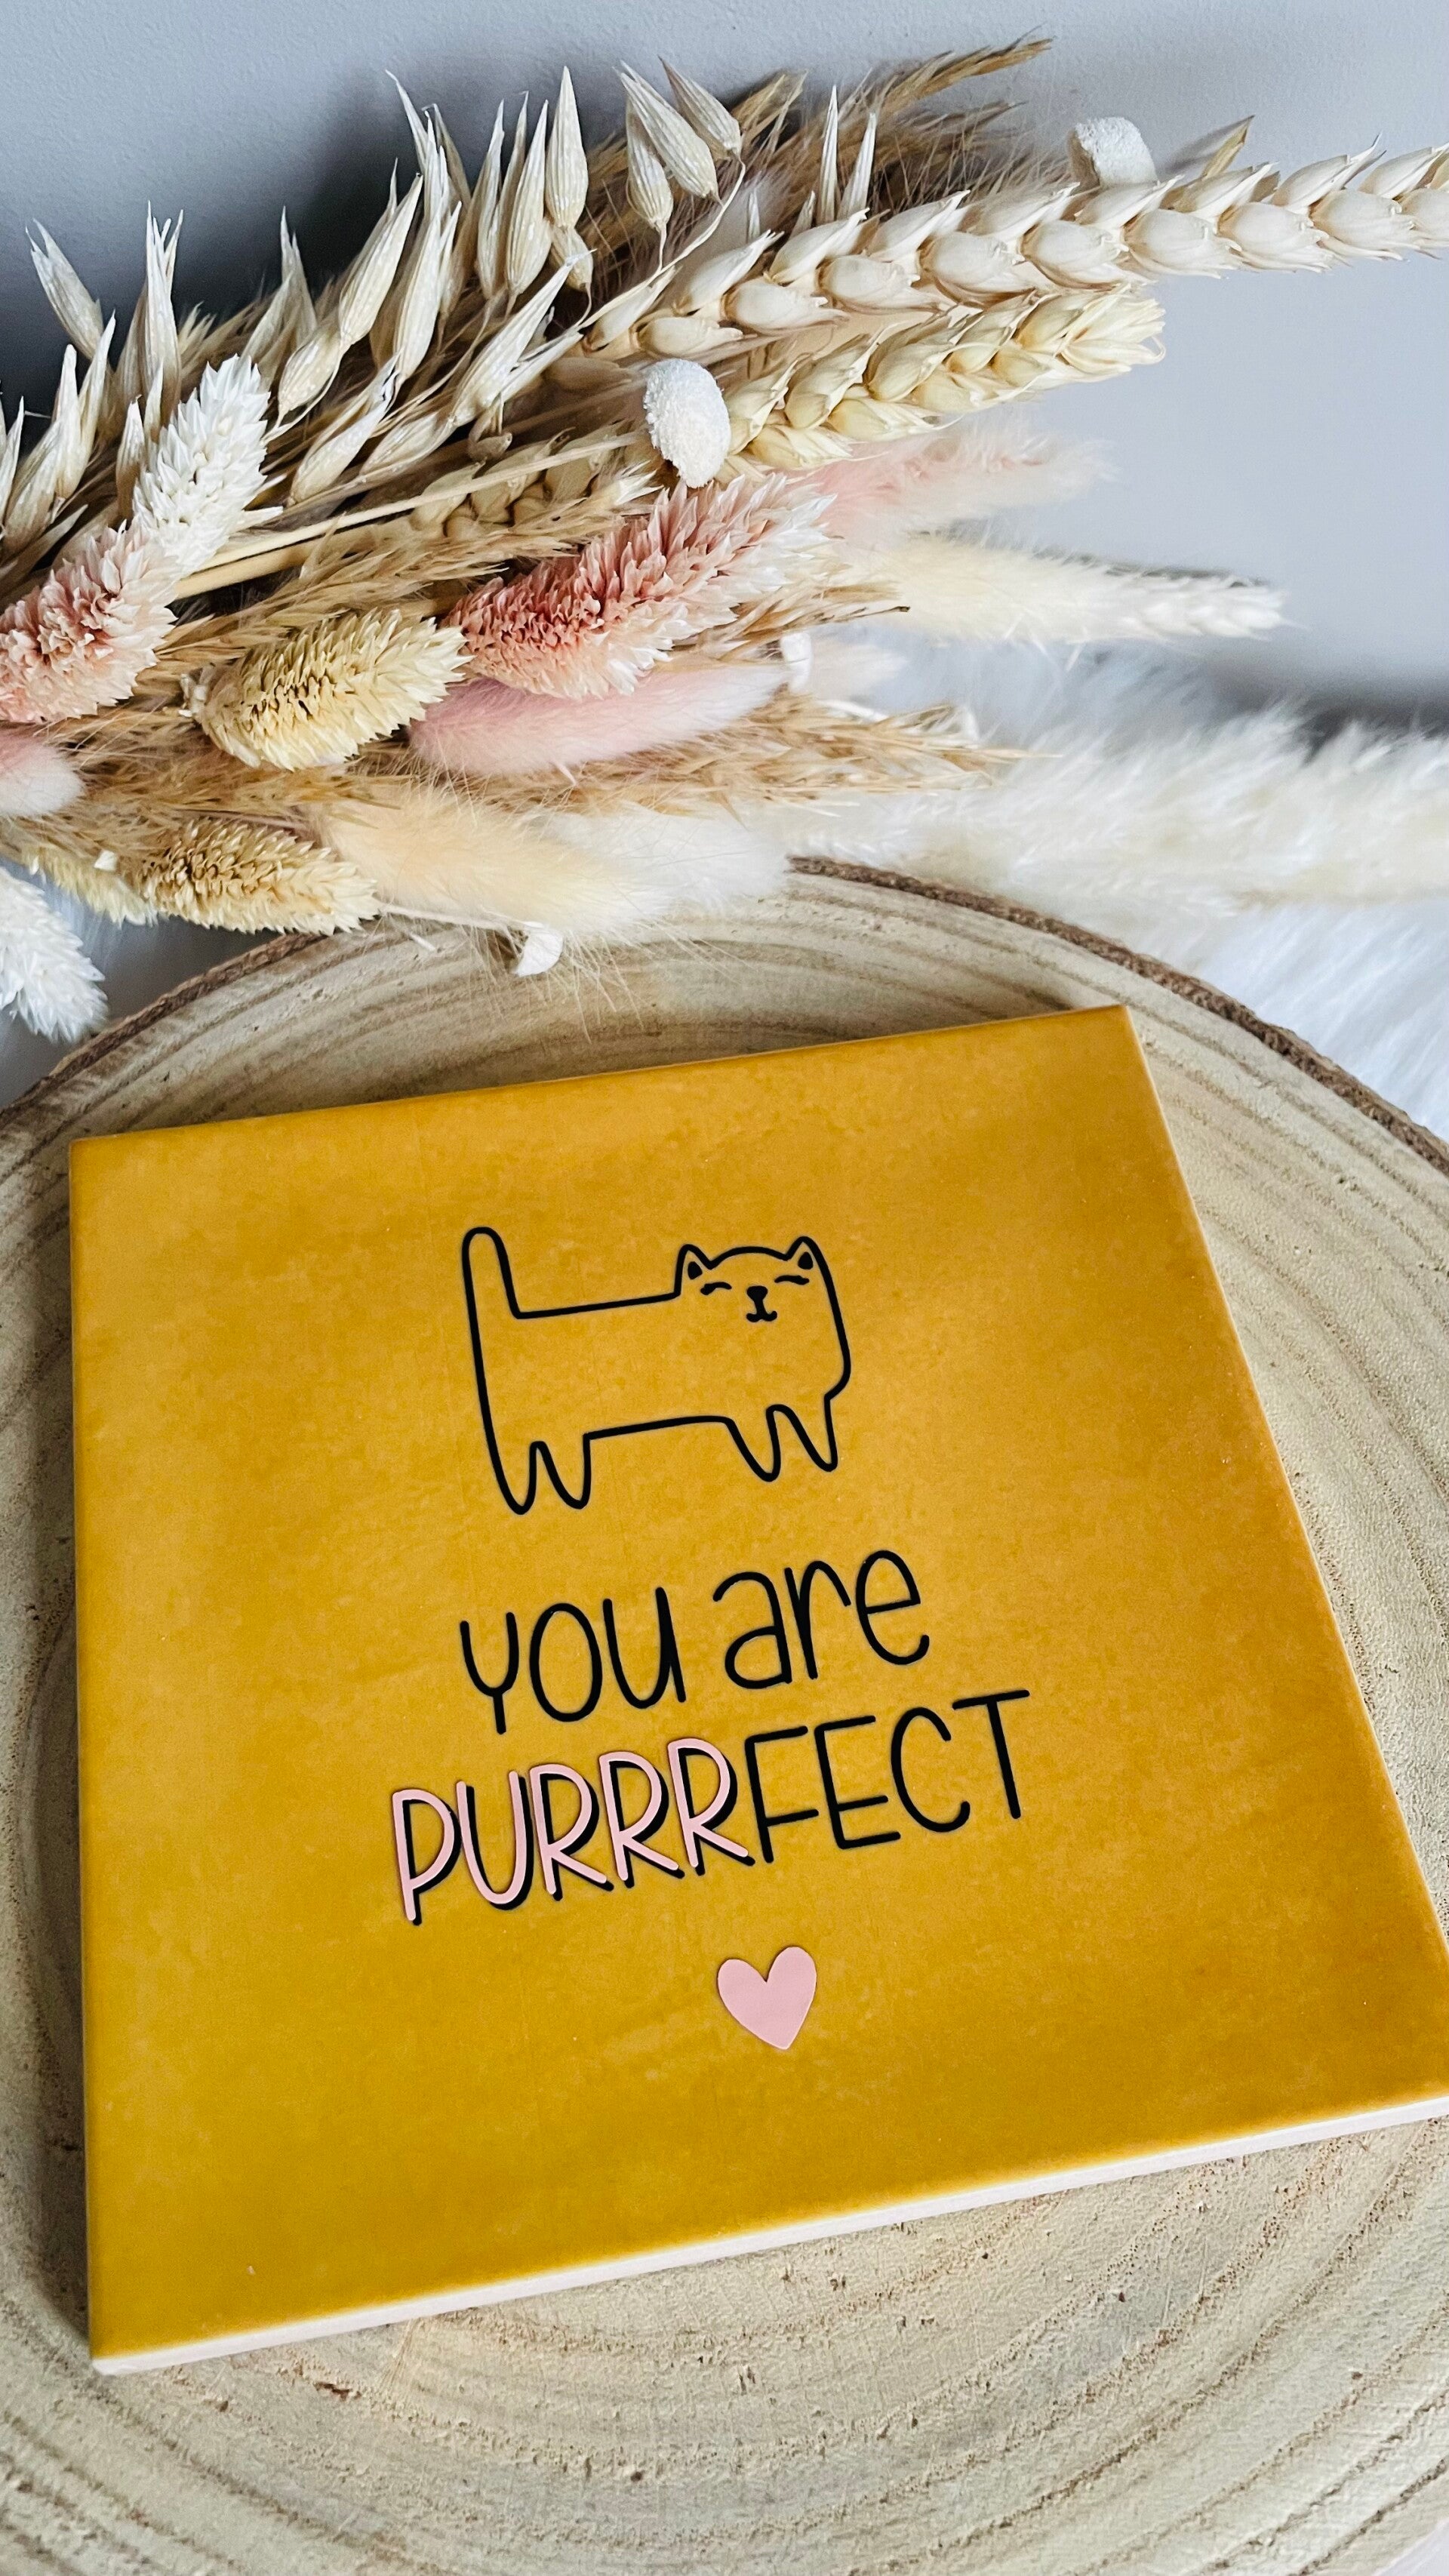 you are
PURRRFECT